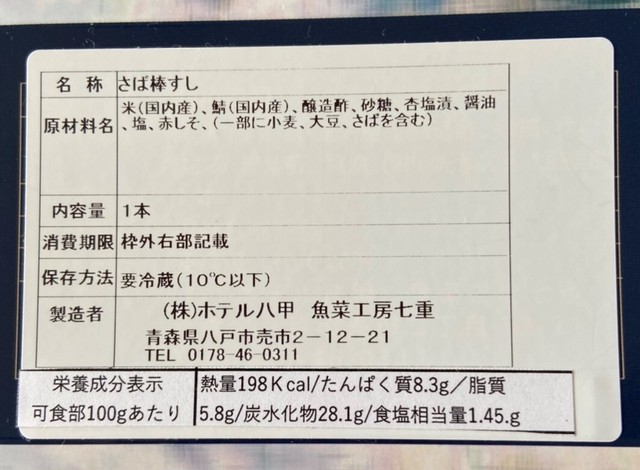 名称 さば棒すし
原材料名 米(国内産)、鯖(国内産)、醸造酢、砂糖、杏塩漬、醤油
、塩、赤しそ、(一部に小麦、大豆、さばを含む)
内容量 1本
消費期限 枠外右部記載
保存方法 要冷蔵(10℃以下)
製造者 (株)ホテル八甲 魚菜工房七重
青森県八戸市売市2-12-21
TEL 0178-46-0311
栄養成分表示 熱量198Kcal/たんぱく質8.3g/脂質
可食部100gあたり 5.8g/炭水化物28.1g/食塩相当量1.45.g